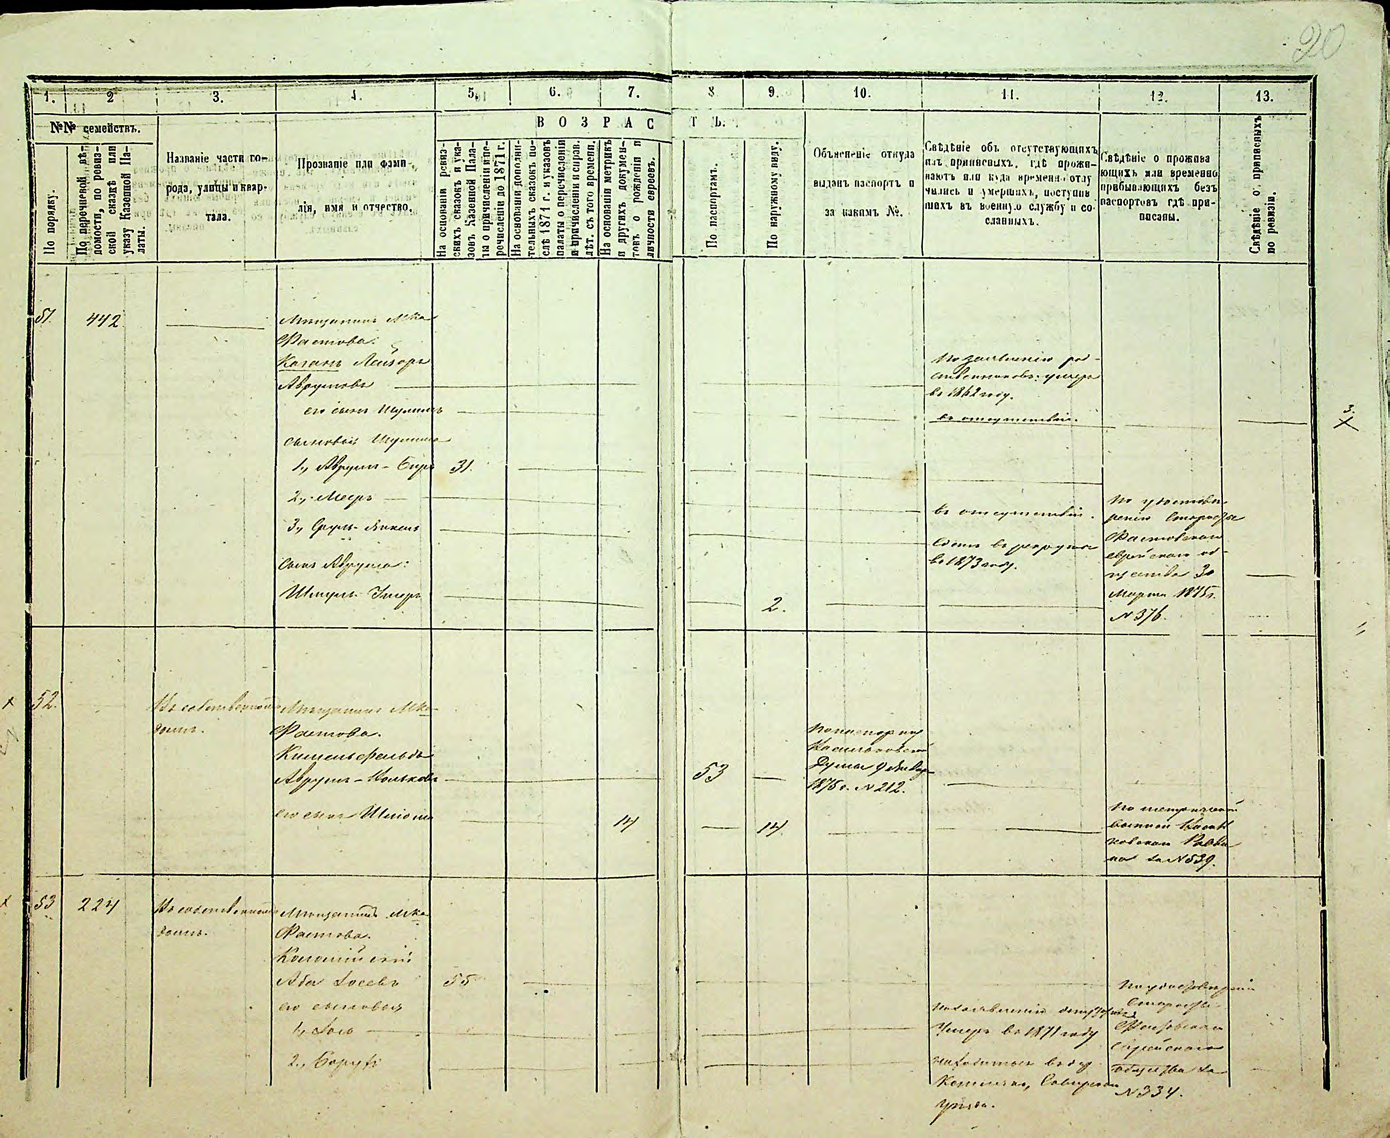 20
1. 2 3. 4. 5. 6. 7. 8 9. 10. 11. 12. 13.
№№ семействъ.
По порядку.
По перечневой вѣ-
домости, по ревиз-
ской сказкѣ или
указу Казенной Па-
латы.
Названіе части го-
рода, улицы и квар-
тала.
Прозваніе или фами-
лія, имя и отчество.
ВОЗРАСТЪ.
На основаніи ревиз-
скихъ сказокъ и ука-
зовъ Казенной Пала-
ты о причисленіи и пе-
речисленіи до 1871 г.
На основаніи дополни-
тельныхъ сказокъ по-
слѣ 1871 г. и указовъ
палаты о перечисленіи
и причисленіи и справ.
лѣт. съ того времени.
На основаніи метрикъ
и другихъ докумен-
товъ о рожденіи и
личности евреевъ.
По паспортамъ.
По наружному виду.
Объясненіе откуда
выданъ паспортъ и
за какимъ №.
Свѣдѣніе объ отсутствующихъ
изъ приписныхъ, гдѣ прожи-
ваютъ или куда временно отлу-
чились и умершихъ, поступив-
шихъ въ военную службу и со-
сланныхъ.
Свѣдѣніе о прожива
ющихъ или временно
прибывающихъ безъ
паспортовъ гдѣ при-
писаны.
Свѣдѣніе о приписныхъ
по ревизіи.
51. 442
Мѣщанинъ Мѣка
Фастова.
Каганъ Лейзоръ
Аврумовъ
его сынъ Шулимъ
сыновья Шулима
1., Аврумъ-Беръ 31.
2., Мееръ
3., Сруль-
сынъ Аврума:
Шмуль- 2.
По заявленію род-
ственниковъ умеръ
въ 1862 году.
въ отсутствіи.
въ отсутствіи.
въ рекруты
въ 1873 году.
По удостовѣ-
ренію Старосты
Фастовскаго
еврейскаго об-
щества 30
Марта 1875 г.
№ 376.
3.
52.
Въ собственномъ
домѣ.
Мѣщанинъ Мѣка
Фастова.
Кисельфельдъ
Аврумъ- 53
его сынъ 14 14
По паспорту
Думы 9 Января
1875 г. № 212.
По метрической
выписи
Равви
на за № 539.
53 224
Въ собственномъ
домѣ.
Мѣщанинъ Мѣка
Фастова.
Аба Іосевъ 55
его сыновья
1., Іось
2., Борухъ
По заявленію
умеръ въ 1871 году
находится въ
уѣзда.
По удостовѣренію
Старосты
Фастовскаго
Еврейскаго
общества за
№ 334.